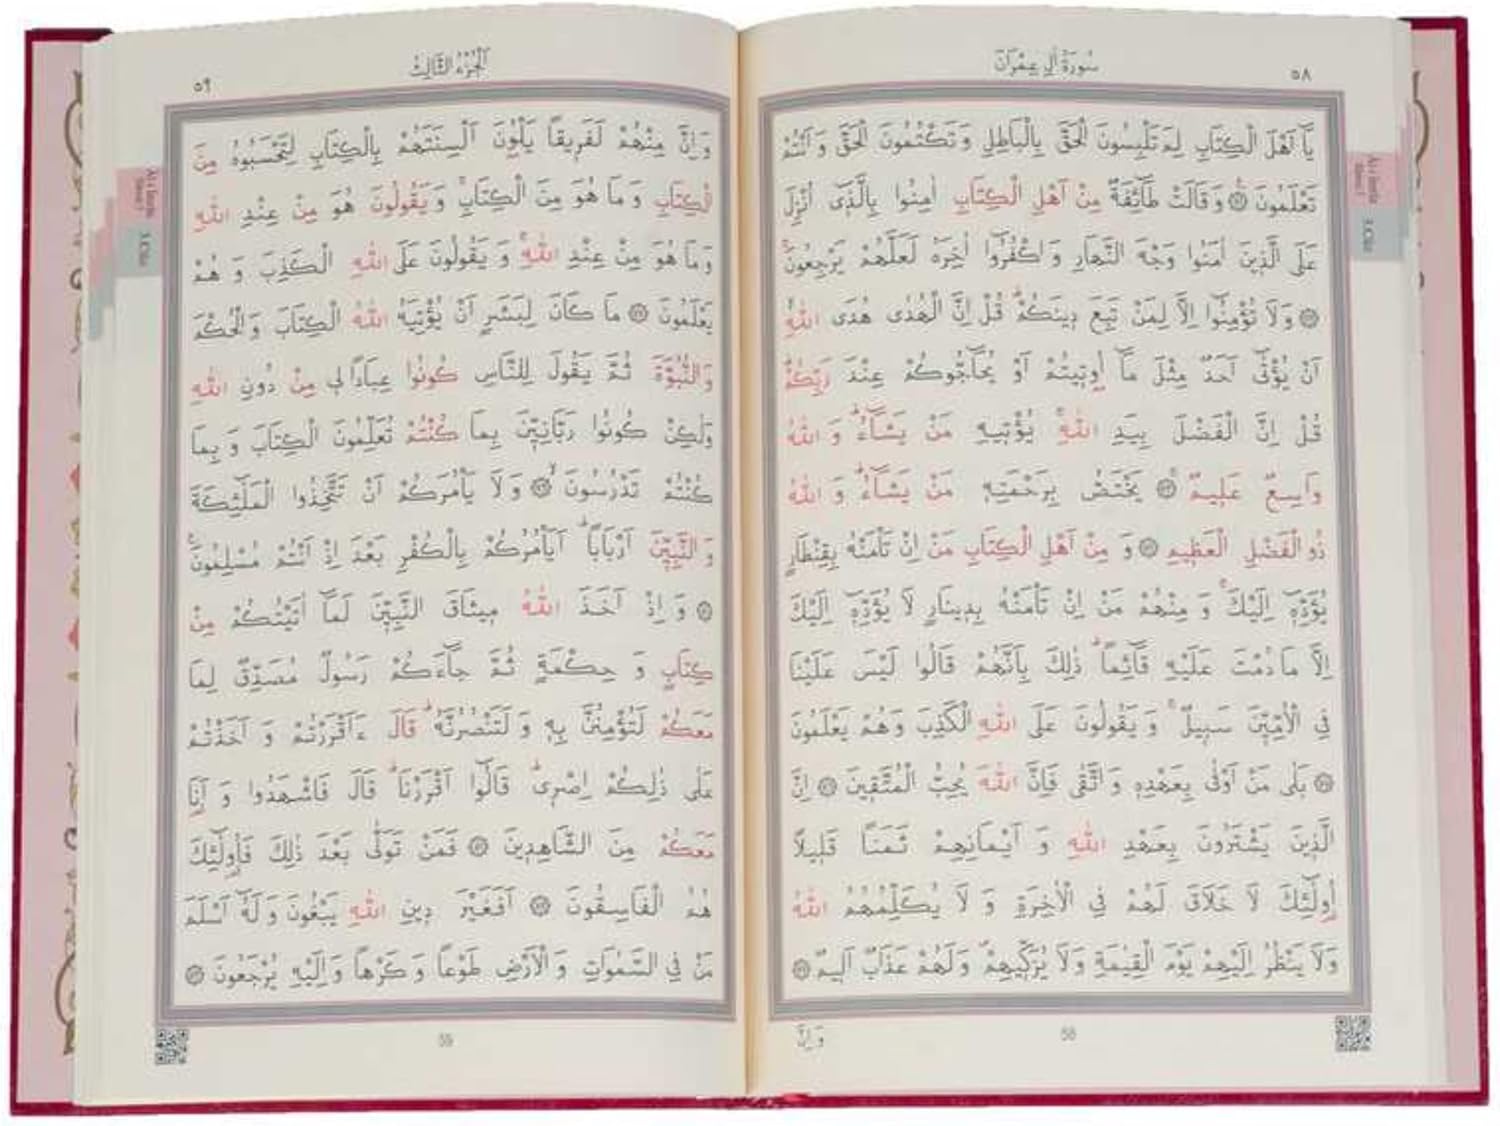 سُورَةُ اٰلِ عِمْرَانَ
٥٨
يَٓا اَهْلَ الْكِتَابِ لِمَ تَلْبِسُونَ الْحَقَّ بِالْبَاطِلِ وَتَكْتُمُونَ الْحَقَّ وَاَنْتُمْ
تَعْلَمُونَ ۞ وَقَالَتْ طَٓائِفَةٌ مِنْ اَهْلِ الْكِتَابِ اٰمِنُوا بِالَّذٖٓى اُنْزِلَ
عَلَى الَّذٖينَ اٰمَنُوا وَجْهَ النَّهَارِ وَاكْفُرُٓوا اٰخِرَهُ لَعَلَّهُمْ يَرْجِعُونَ
۞ وَلَا تُؤْمِنُٓوا اِلَّا لِمَنْ تَبِعَ دٖينَكُمْ قُلْ اِنَّ الْهُدٰى هُدَى اللّٰهِ
اَنْ يُؤْتٰٓى اَحَدٌ مِثْلَ مَٓا اُوتٖيتُمْ اَوْ يُحَٓاجُّوكُمْ عِنْدَ رَبِّكُمْ
قُلْ اِنَّ الْفَضْلَ بِيَدِ اللّٰهِ يُؤْتٖيهِ مَنْ يَشَٓاءُ وَاللّٰهُ
وَاسِعٌ عَلٖيمٌ ۞ يَخْتَصُّ بِرَحْمَتِهٖ مَنْ يَشَٓاءُ وَاللّٰهُ
ذُو الْفَضْلِ الْعَظٖيمِ ۞ وَمِنْ اَهْلِ الْكِتَابِ مَنْ اِنْ تَأْمَنْهُ بِقِنْطَارٍ
يُؤَدِّهٖٓ اِلَيْكَ وَمِنْهُمْ مَنْ اِنْ تَأْمَنْهُ بِدٖينَارٍ لَا يُؤَدِّهٖٓ اِلَيْكَ
اِلَّا مَا دُمْتَ عَلَيْهِ قَٓائِماً ذٰلِكَ بِاَنَّهُمْ قَالُوا لَيْسَ عَلَيْنَا
فِى الْاُمِّيّٖنَ سَبٖيلٌ وَيَقُولُونَ عَلَى اللّٰهِ الْكَذِبَ وَهُمْ يَعْلَمُونَ
۞ بَلٰى مَنْ اَوْفٰى بِعَهْدِهٖ وَاتَّقٰى فَاِنَّ اللّٰهَ يُحِبُّ الْمُتَّقٖينَ ۞ اِنَّ
الَّذٖينَ يَشْتَرُونَ بِعَهْدِ اللّٰهِ وَاَيْمَانِهِمْ ثَمَناً قَلٖيلاً
اُولٰٓئِكَ لَا خَلَاقَ لَهُمْ فِى الْاٰخِرَةِ وَلَا يُكَلِّمُهُمُ اللّٰهُ
وَلَا يَنْظُرُ اِلَيْهِمْ يَوْمَ الْقِيٰمَةِ وَلَا يُزَكّٖيهِمْ وَلَهُمْ عَذَابٌ اَلٖيمٌ ۞
58
وَاِنَّ
اَلْجُزْءُ الثَّالِثُ
٥٩
وَاِنَّ مِنْهُمْ لَفَرٖيقاً يَلْوُنَ اَلْسِنَتَهُمْ بِالْكِتَابِ لِتَحْسَبُوهُ مِنَ
الْكِتَابِ وَمَا هُوَ مِنَ الْكِتَابِ وَيَقُولُونَ هُوَ مِنْ عِنْدِ اللّٰهِ
وَمَا هُوَ مِنْ عِنْدِ اللّٰهِ وَيَقُولُونَ عَلَى اللّٰهِ الْكَذِبَ وَهُمْ
يَعْلَمُونَ ۞ مَا كَانَ لِبَشَرٍ اَنْ يُؤْتِيَهُ اللّٰهُ الْكِتَابَ وَالْحُكْمَ
وَالنُّبُوَّةَ ثُمَّ يَقُولَ لِلنَّاسِ كُونُوا عِبَاداً لٖى مِنْ دُونِ اللّٰهِ
وَلٰكِنْ كُونُوا رَبَّانِيّٖنَ بِمَا كُنْتُمْ تُعَلِّمُونَ الْكِتَابَ وَبِمَا
كُنْتُمْ تَدْرُسُونَ ۞ وَلَا يَأْمُرَكُمْ اَنْ تَتَّخِذُوا الْمَلٰٓئِكَةَ
وَالنَّبِيّٖنَ اَرْبَاباً اَيَأْمُرُكُمْ بِالْكُفْرِ بَعْدَ اِذْ اَنْتُمْ مُسْلِمُونَ
۞ وَاِذْ اَخَذَ اللّٰهُ مٖيثَاقَ النَّبِيّٖنَ لَمَٓا اٰتَيْتُكُمْ مِنْ
كِتَابٍ وَحِكْمَةٍ ثُمَّ جَٓاءَكُمْ رَسُولٌ مُصَدِّقٌ لِمَا
مَعَكُمْ لَتُؤْمِنُنَّ بِهٖ وَلَتَنْصُرُنَّهُ قَالَ ءَاَقْرَرْتُمْ وَاَخَذْتُمْ
عَلٰى ذٰلِكُمْ اِصْرٖى قَالُٓوا اَقْرَرْنَا قَالَ فَاشْهَدُوا وَاَنَا
مَعَكُمْ مِنَ الشَّاهِدٖينَ ۞ فَمَنْ تَوَلّٰى بَعْدَ ذٰلِكَ فَاُولٰٓئِكَ
هُمُ الْفَاسِقُونَ ۞ اَفَغَيْرَ دٖينِ اللّٰهِ يَبْغُونَ وَلَهُٓ اَسْلَمَ
مَنْ فِى السَّمٰوَاتِ وَالْاَرْضِ طَوْعاً وَكَرْهاً وَاِلَيْهِ يُرْجَعُونَ ۞
59